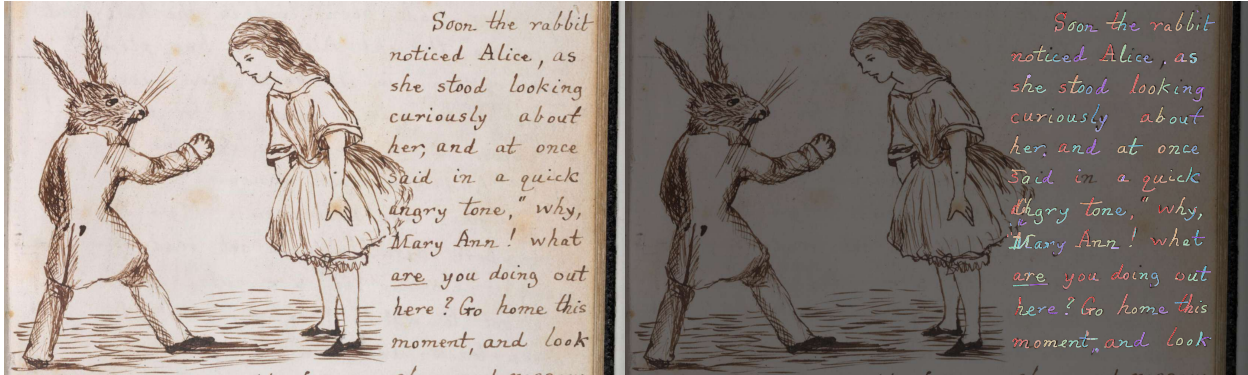 Soon the rabbit
noticed Alice, as
she stood looking
curiously about
her, and at once
said in a quick
angry tone," why,
Mary Ann! what
are you doing out
here? Go home this
moment, and look
Soon the rabbit
noticed Alice, as
she stood looking
curiously about
her, and at once
said in a quick
angry tone," why,
Mary Ann! what
are you doing out
here? Go home this
moment, and look